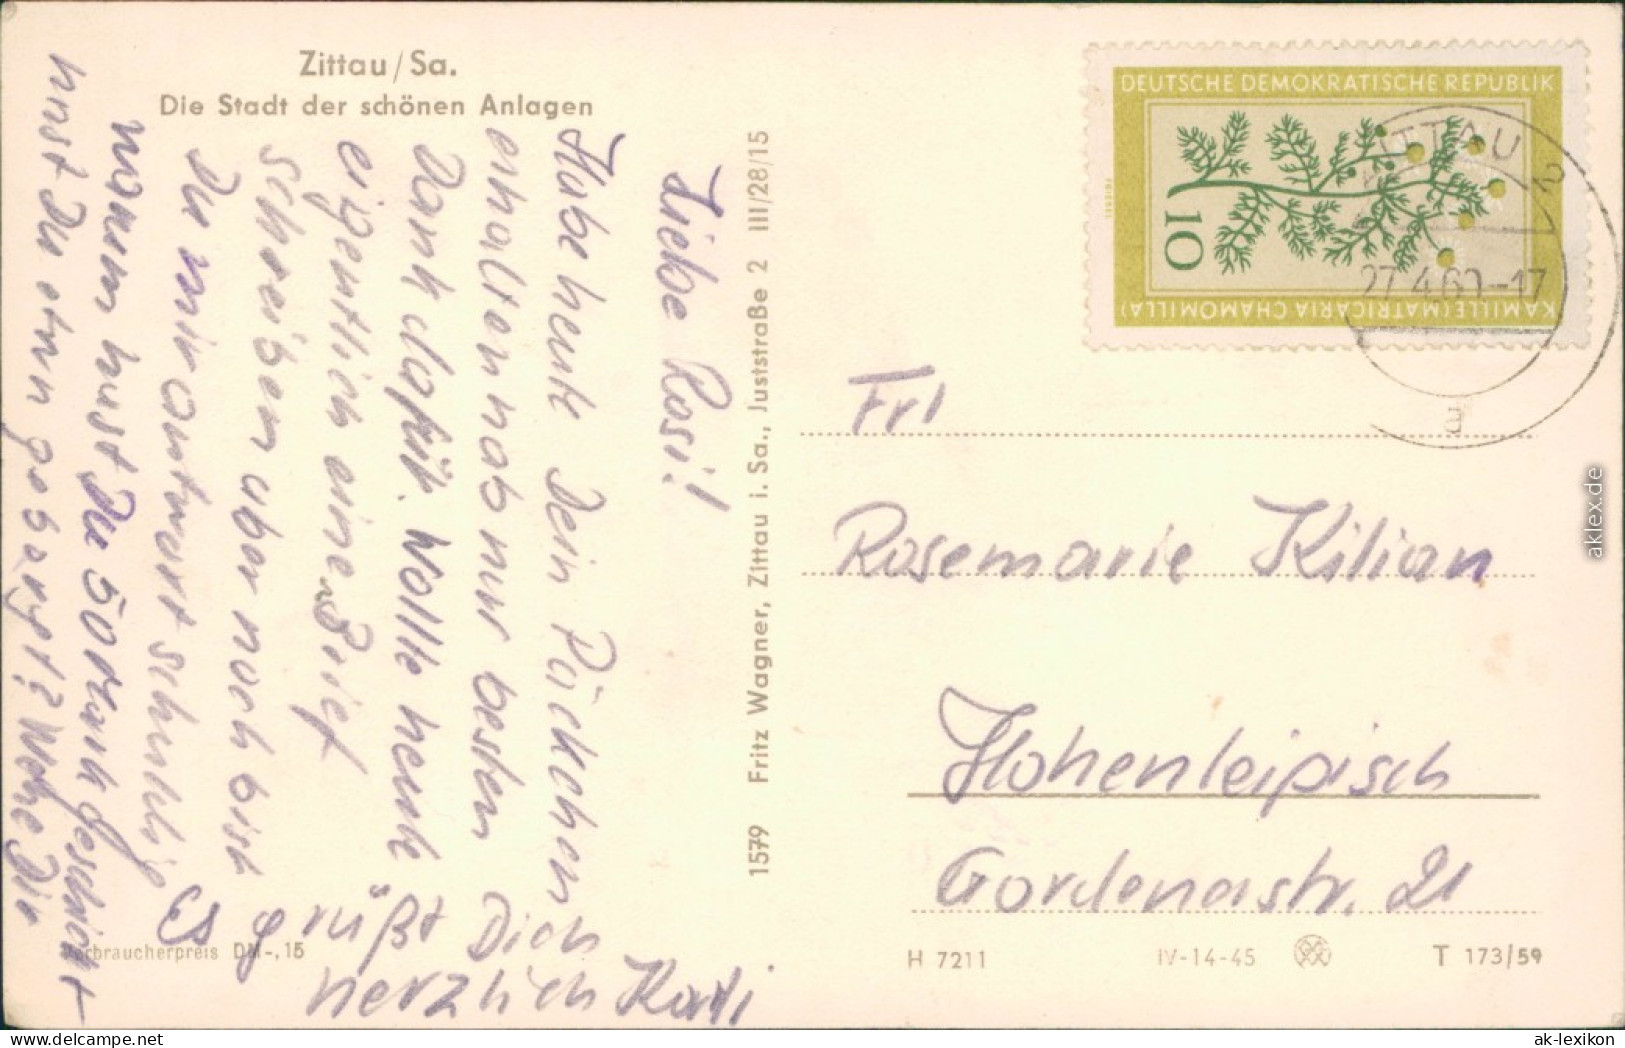 Zittau/Sa.
Die Stadt der schönen Anlagen
Liebe Rosi!
Habe heute Dein Päckchen
erhalten hab nur besten
Dank dafür. Wolle heute
eigentlich einen Brief
schreiben aber noch bist
Du mir antwort schuldig
warum hast Du 50 Mark geschickt
hast Du etwa
Wehe Dir
Es grüßt Dich
herzlich Karli
Verbraucherpreis DM -,15
1579 Fritz Wagner, Zittau i. Sa., Juststraße 2 III/28/15
DEUTSCHE DEMOKRATISCHE REPUBLIK
10
KAMILLE (MATRICARIA CHAMOMILLA)
ZITTAU 2
27.4.60-17
a
Frl
Rosemarie Kilian
Hohenleipisch
Gordenastr. 21
H 7211 IV-14-45 T 173/59
aklex.de
www.delcampe.net
ak-lexikon